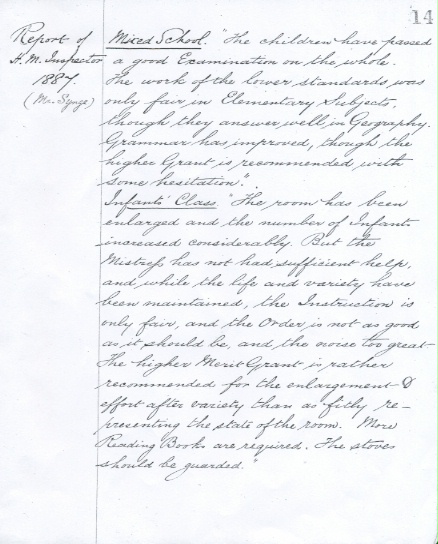 14
Report of
H. M. Inspector
1887.
(Mr. Synge)
Mixed School. "The children have passed
a good Examination on the whole.
The work of the lower standards was
only fair in Elementary Subjects,
though they answer well in Geography.
Grammar has improved, though the
higher Grant is recommended with
some hesitation".
Infants' Class. "The room has been
enlarged and the number of Infants
increased considerably. But the
Mistress has not had sufficient help,
and while the life and variety have
been maintained, the Instruction is
only fair, and the Order is not as good
as it should be, and the noise too great-
The higher Merit Grant is rather
recommended for the enlargement &
effort after variety than as fitly re-
presenting the state of the room. More
Reading Books are required. The stoves
should be guarded."